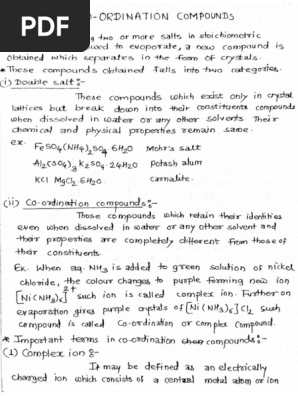 PDF
O-ORDINATION COMPOUNDS
ng two or more salts in stoichiometric
owed to evaporate, a new compound is
obtained which separates in the form of crystals.
* These compounds obtained falls into two categories.
(i) Double salt :-
These compounds which exist only in crystal
lattices but break down into their constituents compounds
when dissolved in water or any other solvents. Their
chemical and physical properties remain same.
ex.
FeSO4(NH4)2SO4 6H2O Mohr's salt
Al2(SO4)3 K2SO4 24H2O Potash alum
KCl MgCl2 6H2O Carnalite.
(ii) Co-ordination compounds:-
Those compounds which retain their identities
even when dissolved in water or any other solvent and
their properties are completely different from those of
their constituents.
Ex. When aq. NH3 is added to green solution of nickel
chloride, the colour changes to purple forming new ion
[Ni(NH3)6]2+ such ion is called complex ion. Further on
evaporation gives purple crystals of [Ni(NH3)6]Cl2 such
compound is called Co-ordination or complex compound.
* Important terms in co-ordination compounds:-
(1) Complex ion :-
It may be defined as an electrically
charged ion which consists of a central metal atom or ion